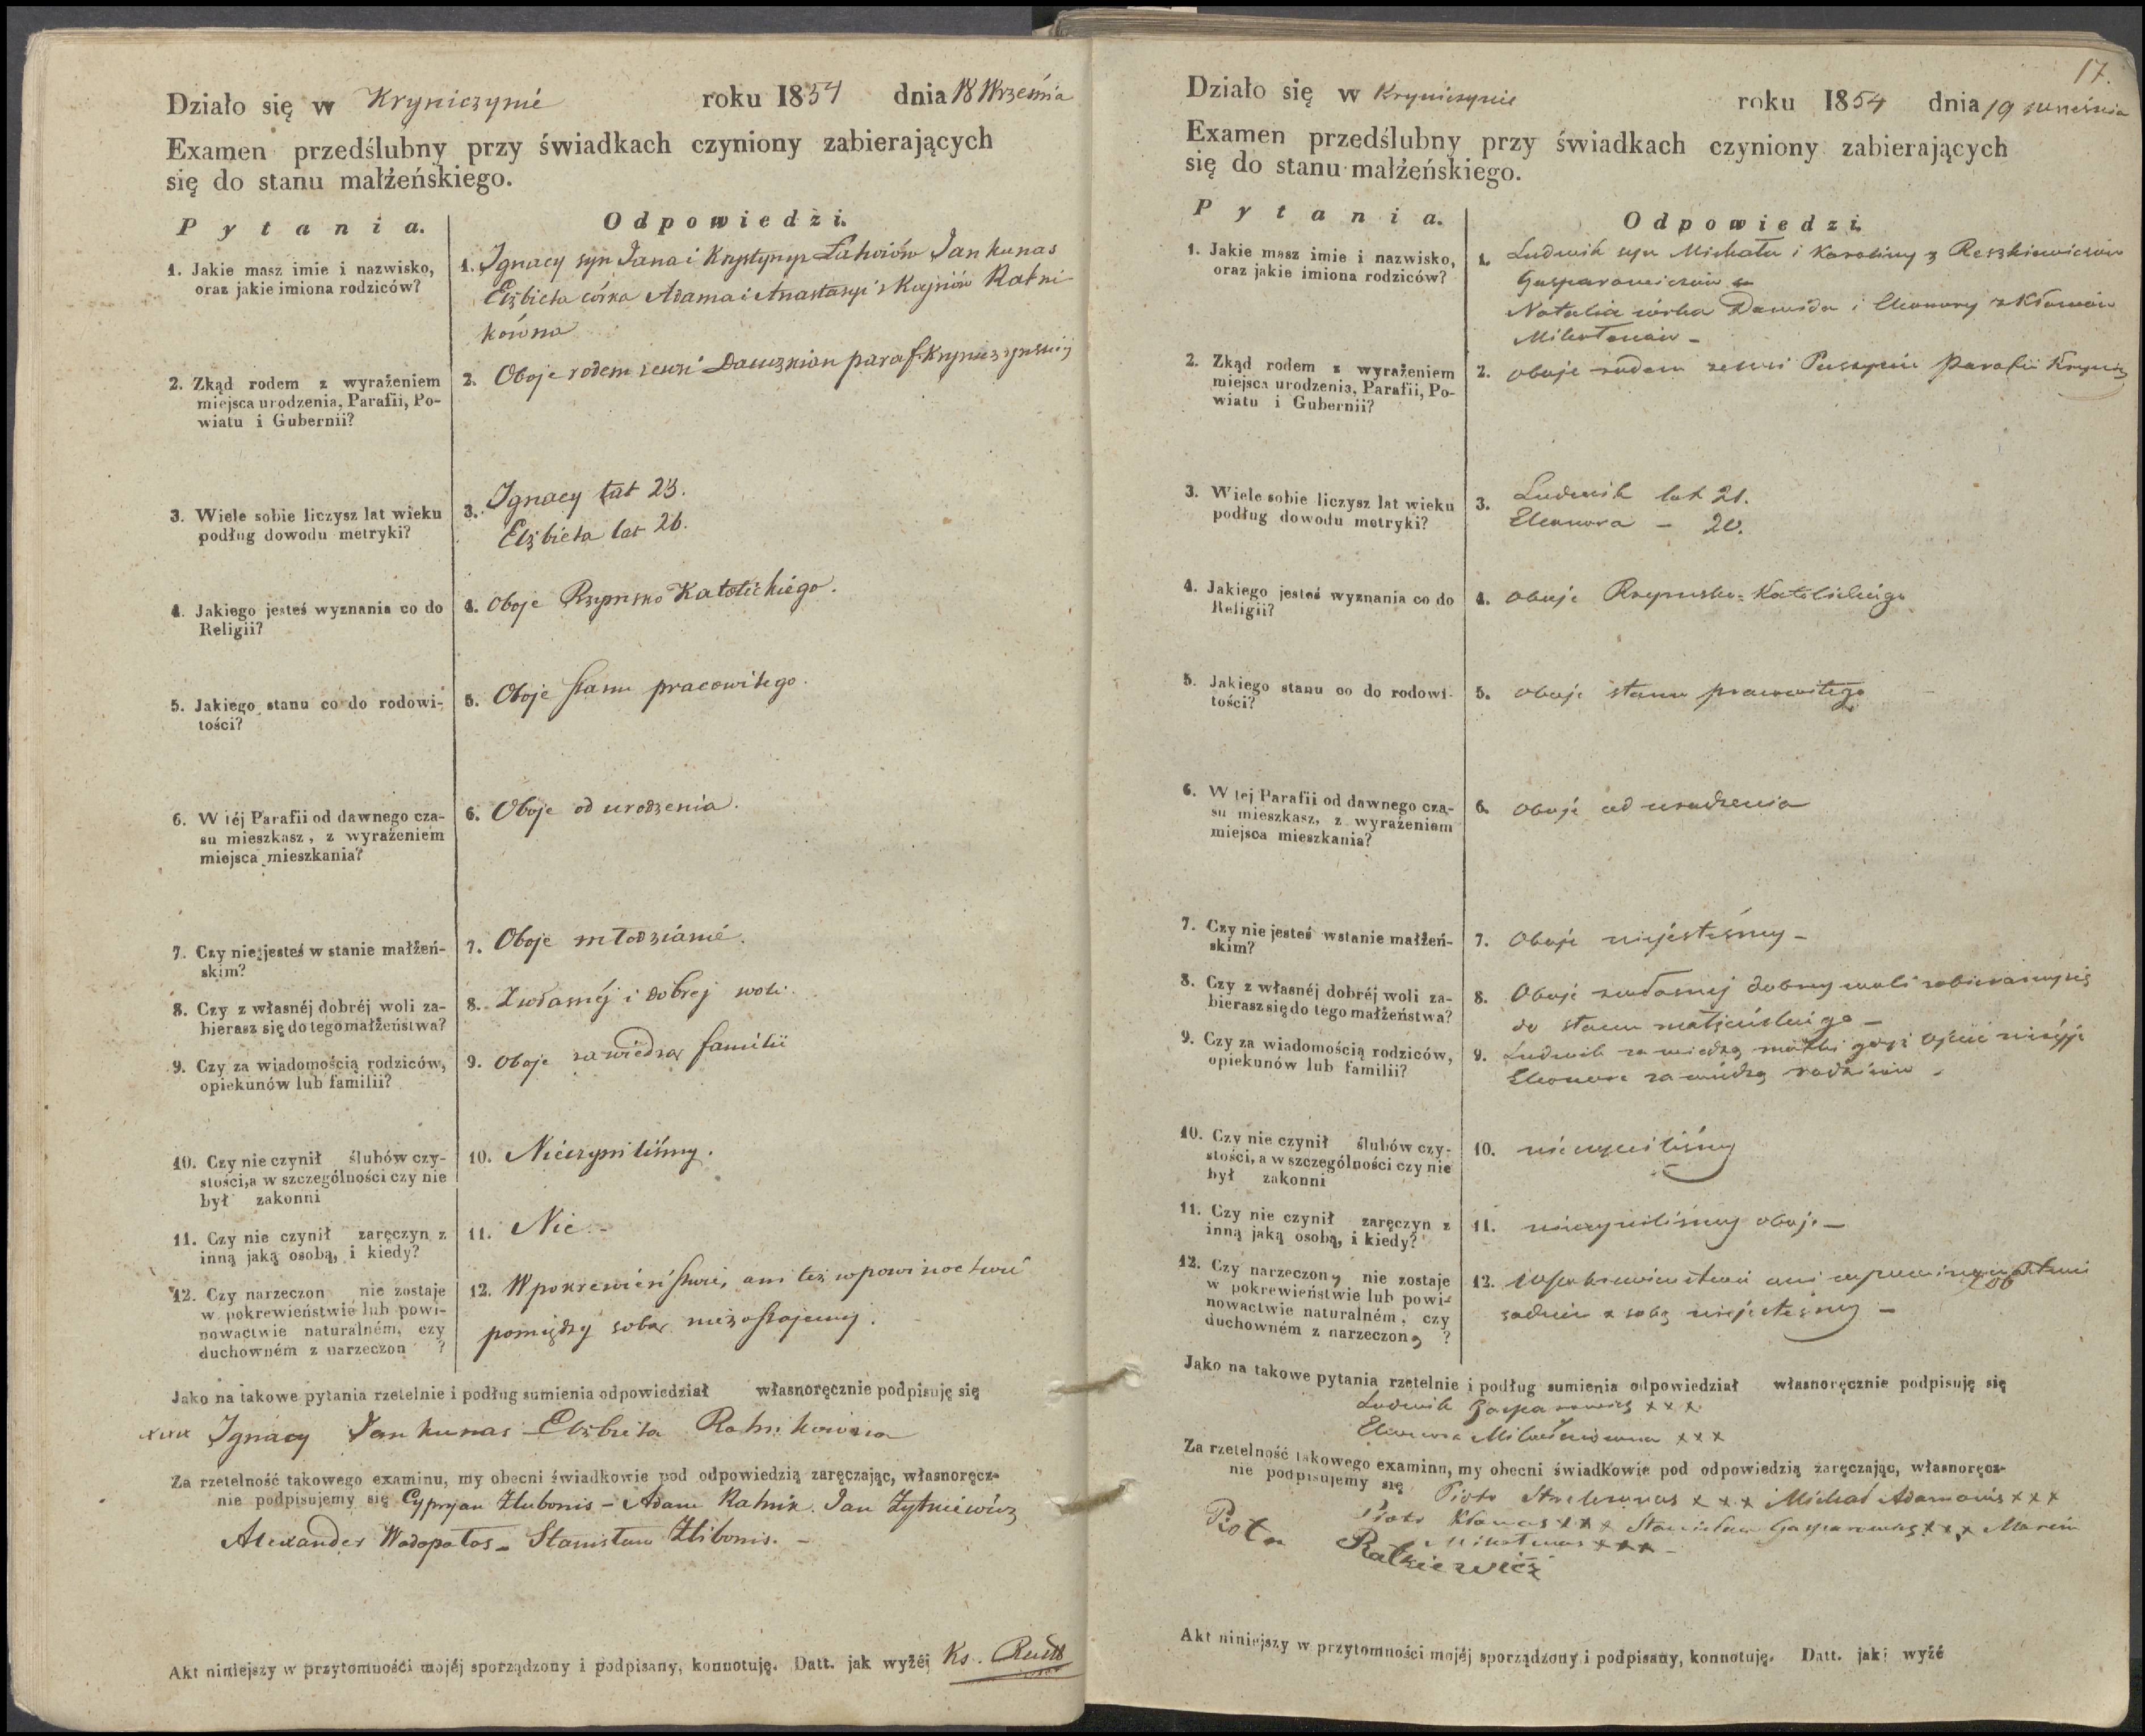 Działo się w Kryniczynie roku 1854 dnia 18 Września
Examen przedślubny przy świadkach czyniony zabierających
się do stanu małżeńskiego.
Pytania. Odpowiedzi.
1. Jakie masz imie i nazwisko,
oraz jakie imiona rodziców?
1. Ignacy syn Jana i Krystyny z Jankunas
Elżbieta córka Adama i Anastazyi z Ratni
kówna
2. Zkąd rodem z wyrażeniem
miejsca urodzenia, Parafii, Po-
wiatu i Gubernii?
2. Oboje rodem zewsi paraf.
3. Wiele sobie liczysz lat wieku
podług dowodu metryki?
3. Ignacy lat 23.
Elżbieta lat 26.
4. Jakiego jesteś wyznania co do
Religii?
4. Oboje Rzymsko Katolickiego.
5. Jakiego stanu co do rodowi-
tości?
5. Oboje stanu pracowitego.
6. W téj Parafii od dawnego cza-
su mieszkasz, z wyrażeniem
miejsca mieszkania?
6. Oboje od urodzenia.
7. Czy nie jesteś w stanie małżeń-
skim?
7. Oboje młodzianie.
8. Czy z własnéj dobréj woli za-
bierasz się do tego małżeństwa?
8. Zwłasnéj i dobrej woli.
9. Czy za wiadomością rodziców,
opiekunów lub familii?
9. Oboje zawiedzą familii
10. Czy nie czynił ślubów czy-
stości, a w szczególności czy nie
był zakonni
10. Nieczyniliśmy.
11. Czy nie czynił zaręczyn z
inną jaką osobą, i kiedy?
11. Nie. -
12. Czy narzeczon nie zostaje
w pokrewieństwie lub powi-
nowactwie naturalném, czy
duchowném z narzeczon ?
12. Wpokrewieństwie, ani też wpowinoctwie
pomiędzy sobą niezostajemy.
Jako na takowe pytania rzetelnie i podług sumienia odpowiedział własnoręcznie podpisuję się
xxx Ignacy Jankunas Elżbieta Ratnikowna
Za rzetelność takowego examinu, my obecni świadkowie pod odpowiedzią zaręczając, własnoręcz-
nie podpisujemy się Cypryan Żlibonis - Adam Ratnik. Jan Żytniewicz
Alexander Wadopałas - Stanisław Żlibonis. -
Akt niniejszy w przytomności mojéj sporządzony i podpisany, konnotuję. Datt. jak wyżéj Ks.
17.
Działo się w Kryniczynie roku 1854 dnia 19 września
Examen przedślubny przy świadkach czyniony zabierających
się do stanu małżeńskiego.
Pytania. Odpowiedzi.
1. Jakie masz imie i nazwisko,
oraz jakie imiona rodziców?
1. Ludwik syn Michała i Karoliny z Reszkiewiczów
Gasparowiczów
Natalia córka Dawida i Eleonory z Kłonsów
Mikołanów -
2. Zkąd rodem z wyrażeniem
miejsca urodzenia, Parafii, Po-
wiatu i Gubernii?
2. oboje rodem zewsi Parafii
3. Wiele sobie liczysz lat wieku
podług dowodu metryki?
3. Ludwik lat 21.
Eleonora - 20.
4. Jakiego jesteś wyznania co do
Religii?
4. oboje Rzymsko-Katolickiego
5. Jakiego stanu co do rodowi-
tości?
5. oboje stanu pracowitego
6. W tej Parafii od dawnego cza-
su mieszkasz, z wyrażeniem
miejsca mieszkania?
6. oboje od urodzenia
7. Czy nie jesteś wstanie małżeń-
skim?
7. Oboje niejesteśmy -
8. Czy z własnéj dobréj woli za-
bierasz się do tego małżeństwa?
8. Oboje zwłasnej dobrej woli zabieramysię
do stanu małżeńskiego -
9. Czy za wiadomością rodziców,
opiekunów lub familii?
9. Ludwik za wiedzą matki gdyż Ojciec nieżyje
Eleonora za wiedzą rodziców.
10. Czy nie czynił ślubów czy-
stości, a w szczególności czy nie
był zakonni
10. nieczyniliśmy
11. Czy nie czynił zaręczyn z
inną jaką osobą, i kiedy?
11. nieczyniliśmy oboje -
12. Czy narzeczoną nie zostaje
w pokrewieństwie lub powi-
nowactwie naturalném, czy
duchowném z narzeczoną ?
12. Wpokrewieństwie ani
żadnem z sobą niejesteśmy -
Jako na takowe pytania rzetelnie i podług sumienia odpowiedział własnoręcznie podpisuję się
Ludwik Gasparowicz xxx
Eleonora xxx
Za rzetelność takowego examinu, my obecni świadkowie pod odpowiedzią zaręczając, własnoręcz-
nie podpisujemy się Piotr xxx Michał Adamowicz xxx
Piotr Kłonas xxx Stanisław Gasparowicz xxx Marcin
xxx -
Piotr Ratkiewicz
Akt niniejszy w przytomności mojéj sporządzony i podpisany, konnotuję. Datt. jak wyżé